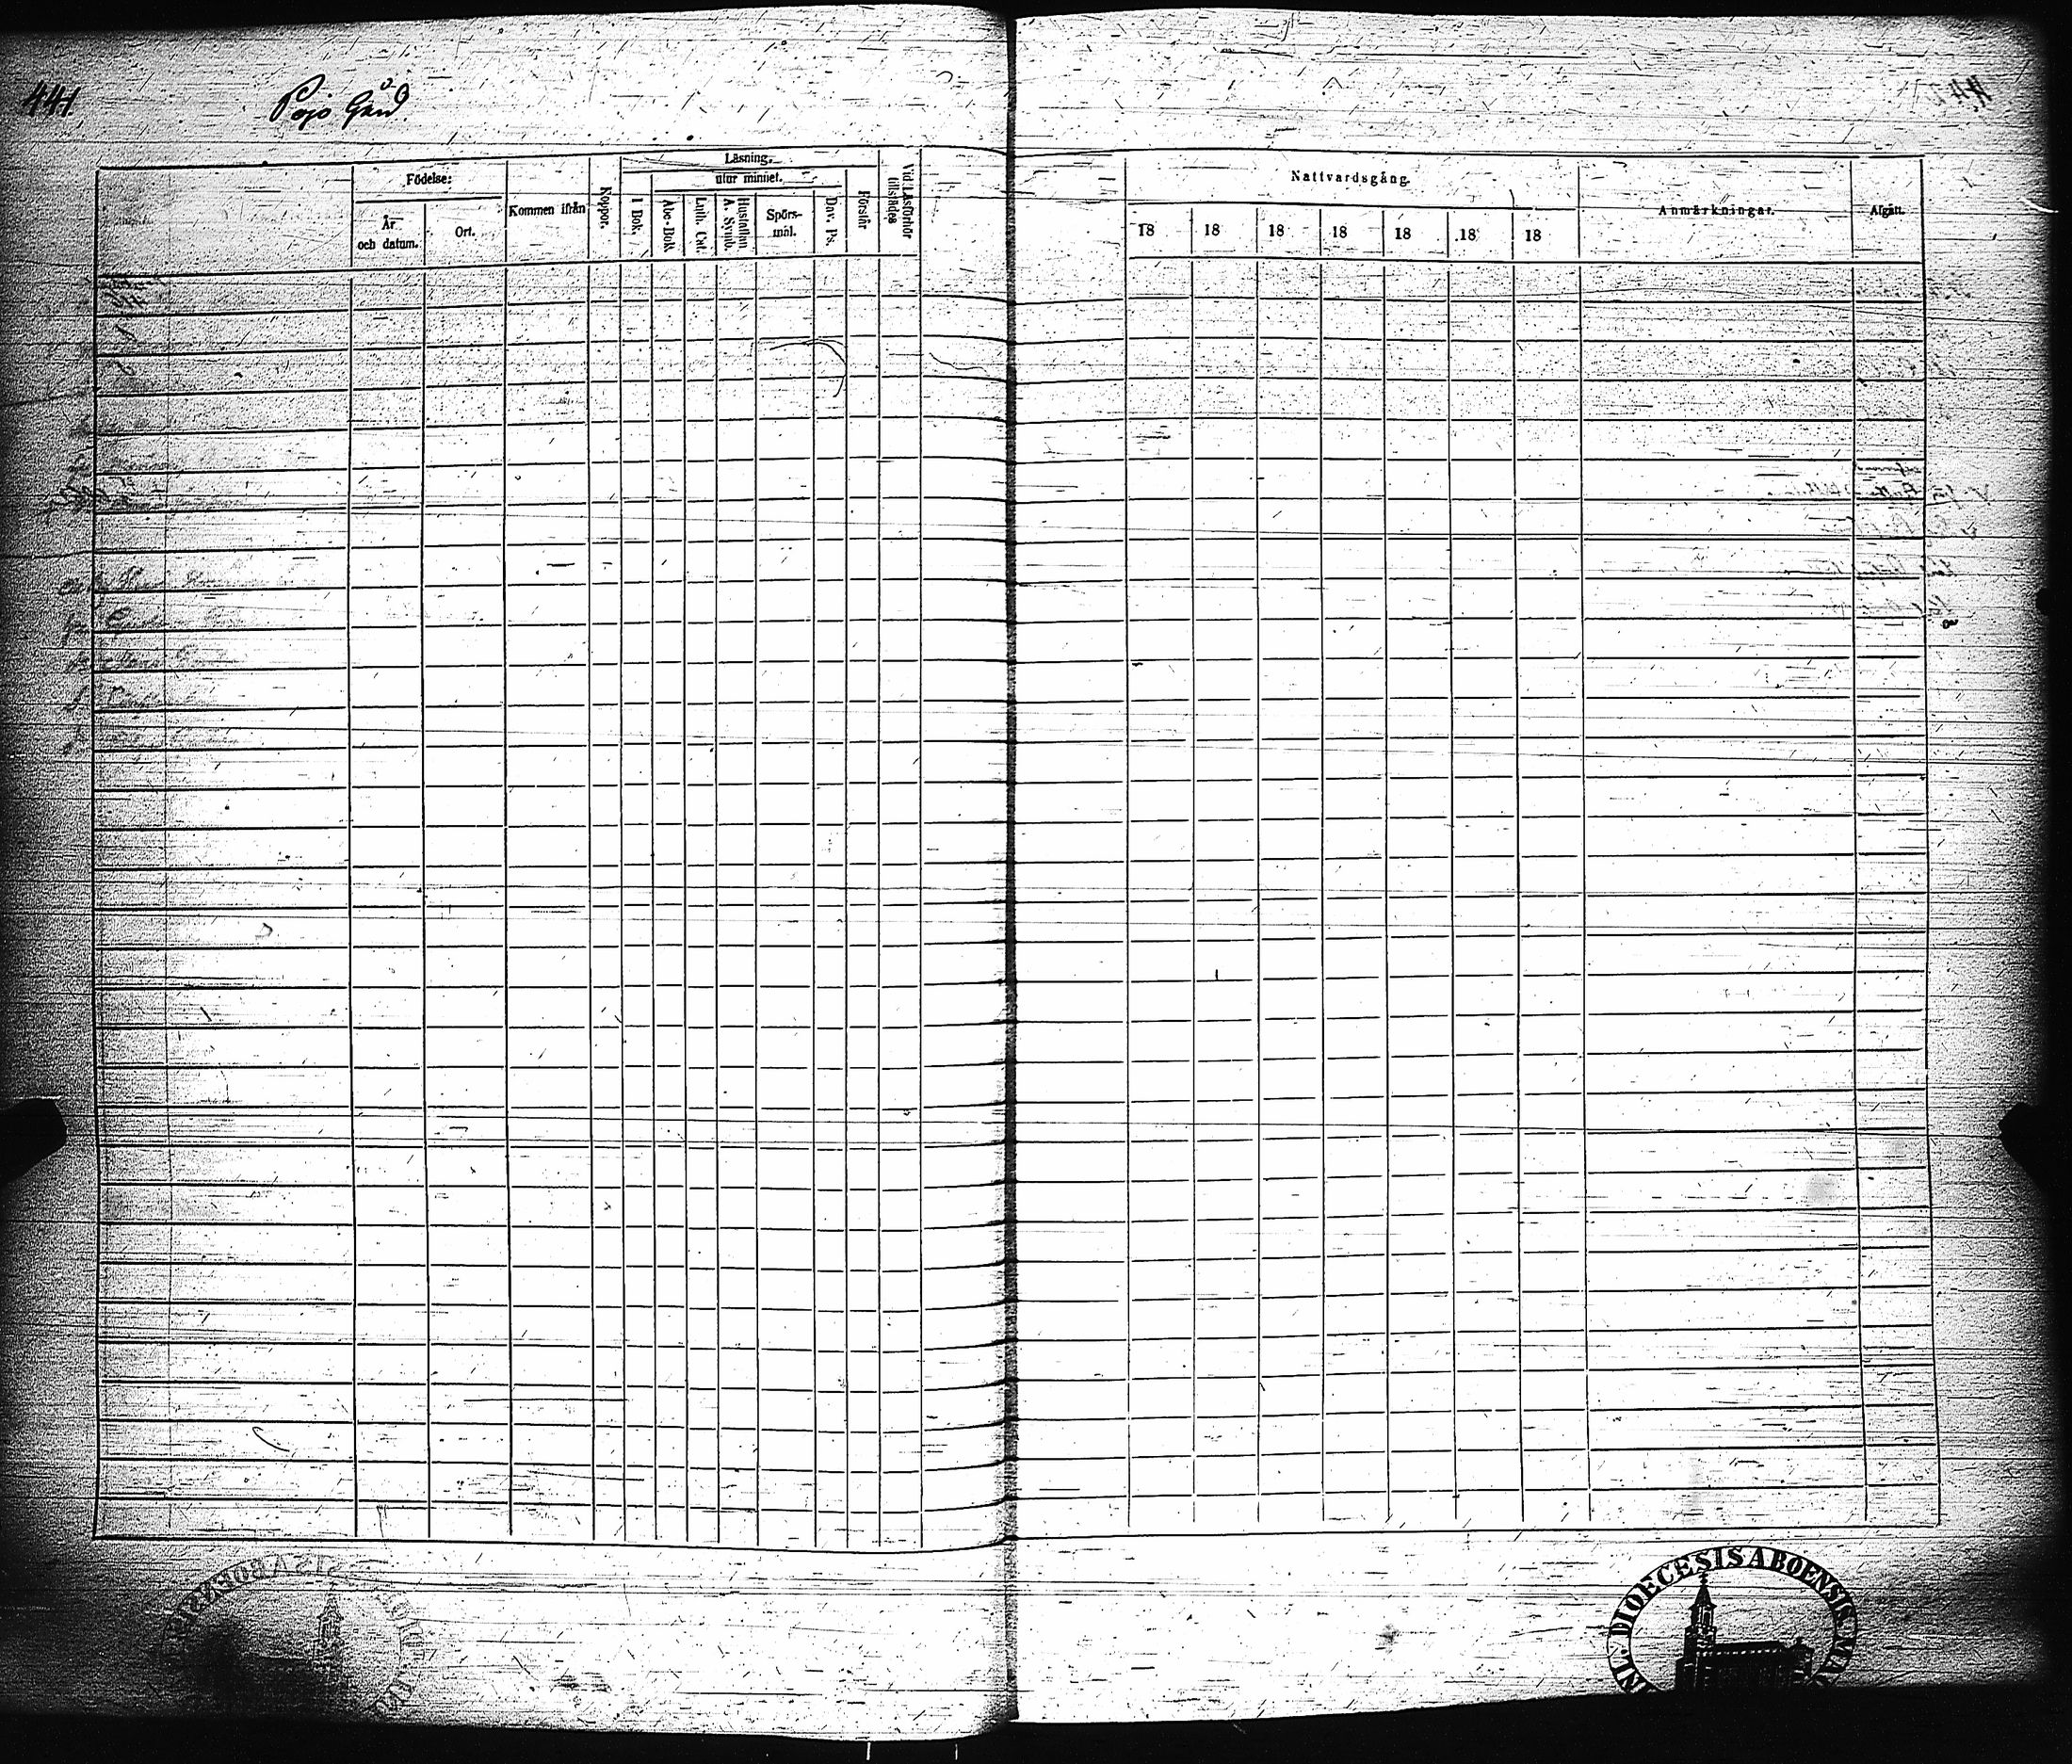 441
Pojo Gård.
Födelse:
År och datum.
Ort.
Kommen ifrån
Koppor.
Läsning.
utur minnet.
I Bok.
Abc-Bok.
Luth. Cat.
Hustaflan A. Symb.
Spörs-mål.
Dav. Ps.
Förstår
Vid Läsförhör tillstädes
Nattvardsgång.
18 18 18 18 18 18 18
Anmärkningar.
Afgått.
DIOECESIS ABOENSIS